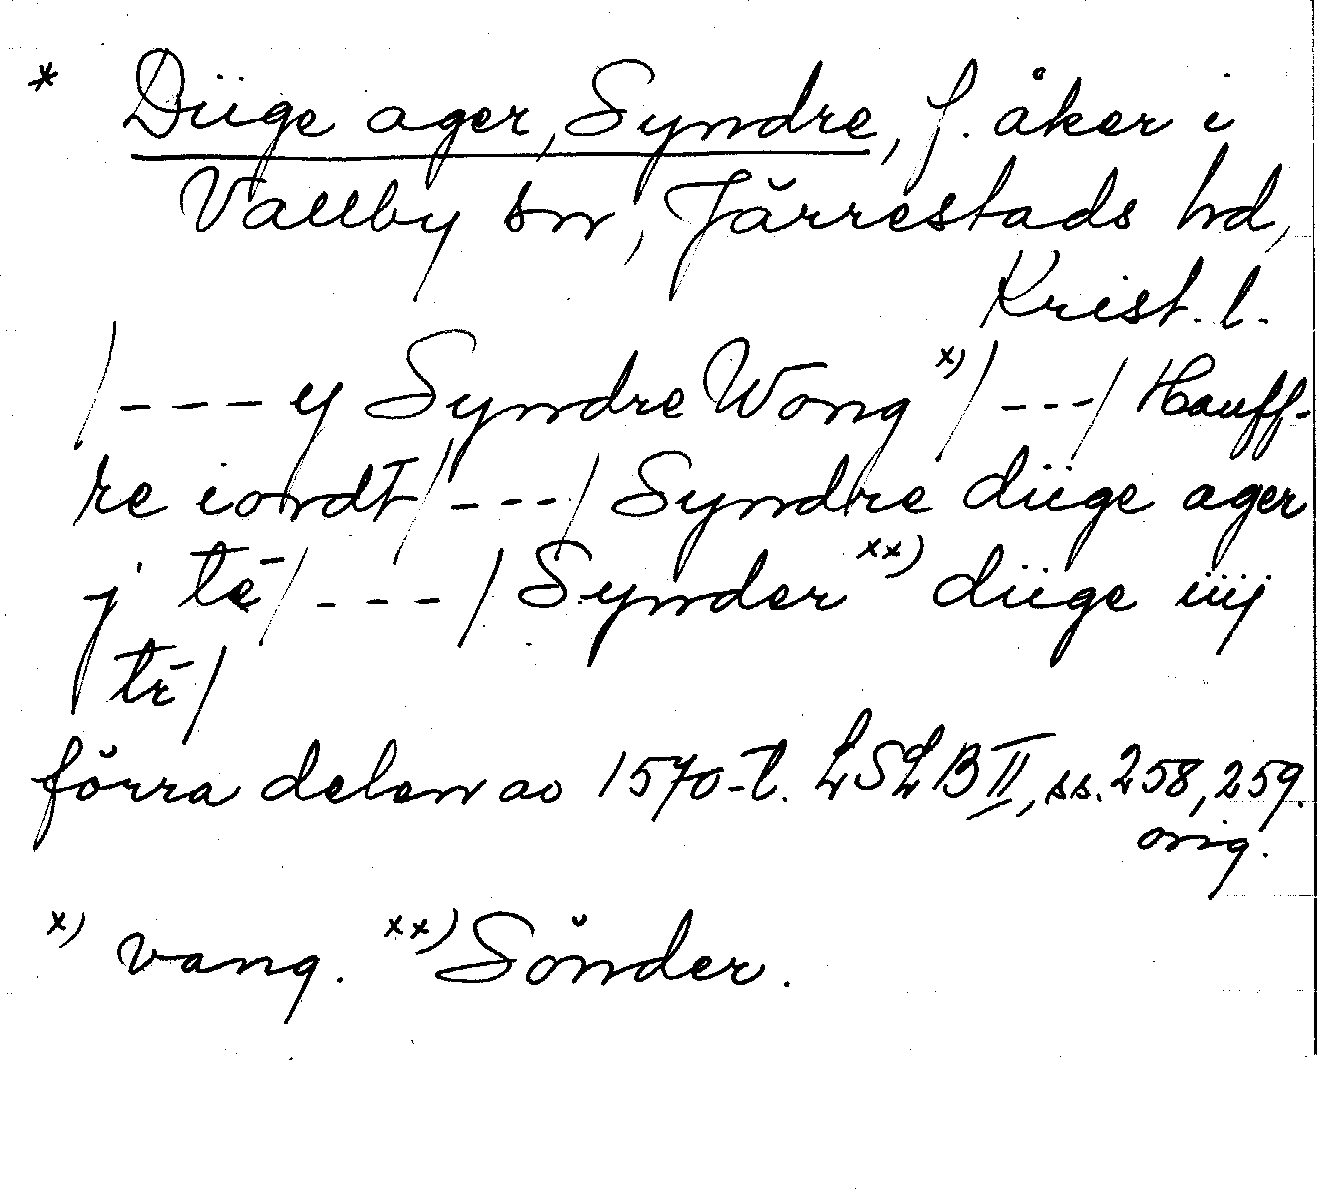 * Diige ager, Syndre, f. åker i
Vallby sn, Järrestads hd,
Krist. l.
/---y Syndre Wong x)/---/ Hauff-
re iordt/---/ Syndre diige ager
j tē/---/ Synder xx) diige iiij
tr̄/
förra delen av 1570-t. LSLB II, ss. 258, 259.
orig.
x) vang. xx) Sönder.